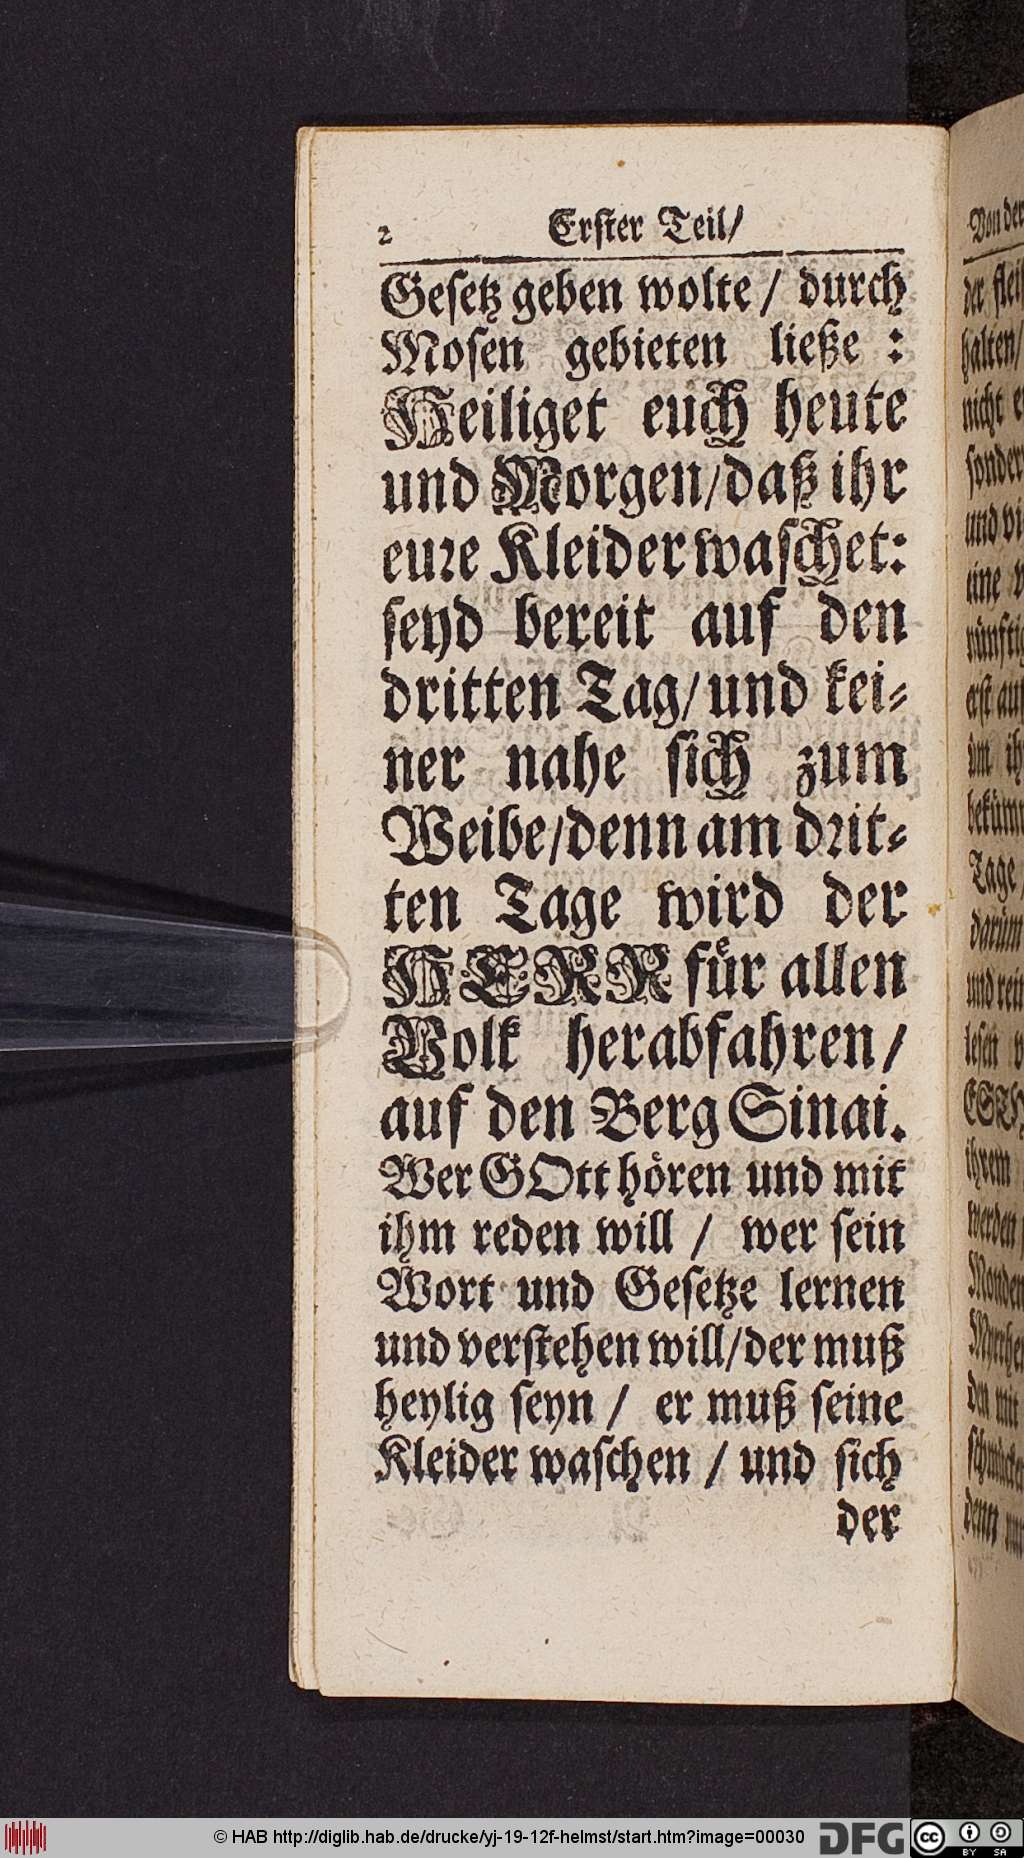 2 Erster Teil/
Gesetz geben wolte / durch
Mosen gebieten ließe :
Heiliget euch heute
und Morgen/daß ihr
eure Kleider waschet:
seyd bereit auf den
dritten Tag/und kei-
ner nahe sich zum
Weibe/denn am drit-
ten Tage wird der
HERR fuͤr allen
Volk herabfahren/
auf den Berg Sinai.
Wer GOtt hören und mit
ihm reden will / wer sein
Wort und Gesetze lernen
und verstehen will/der muß
heylig seyn / er muß seine
Kleider waschen / und sich
der
Von der
der
halten/
nicht
und
Tage
darum
lesen
ihrem
werden
den mit
denn
© HAB http://diglib.hab.de/drucke/yj-19-12f-helmst/start.htm?image=00030
DFG
cc BY SA